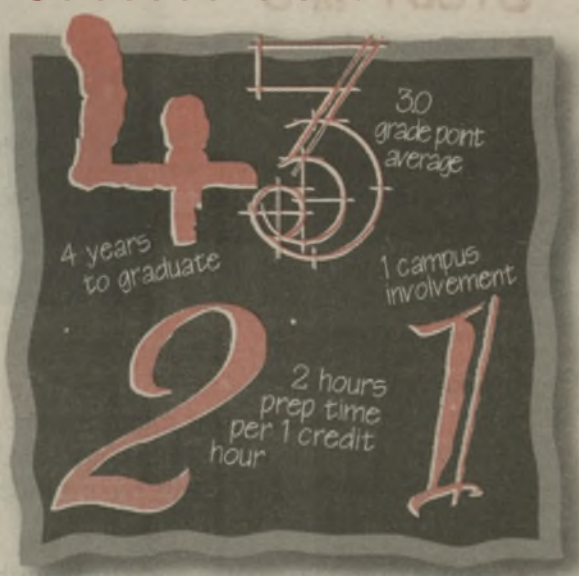 4
3
3.0
grade point
average
4 years
to graduate
1 campus
involvement
2
2 hours
prep time
per 1 credit
hour
1